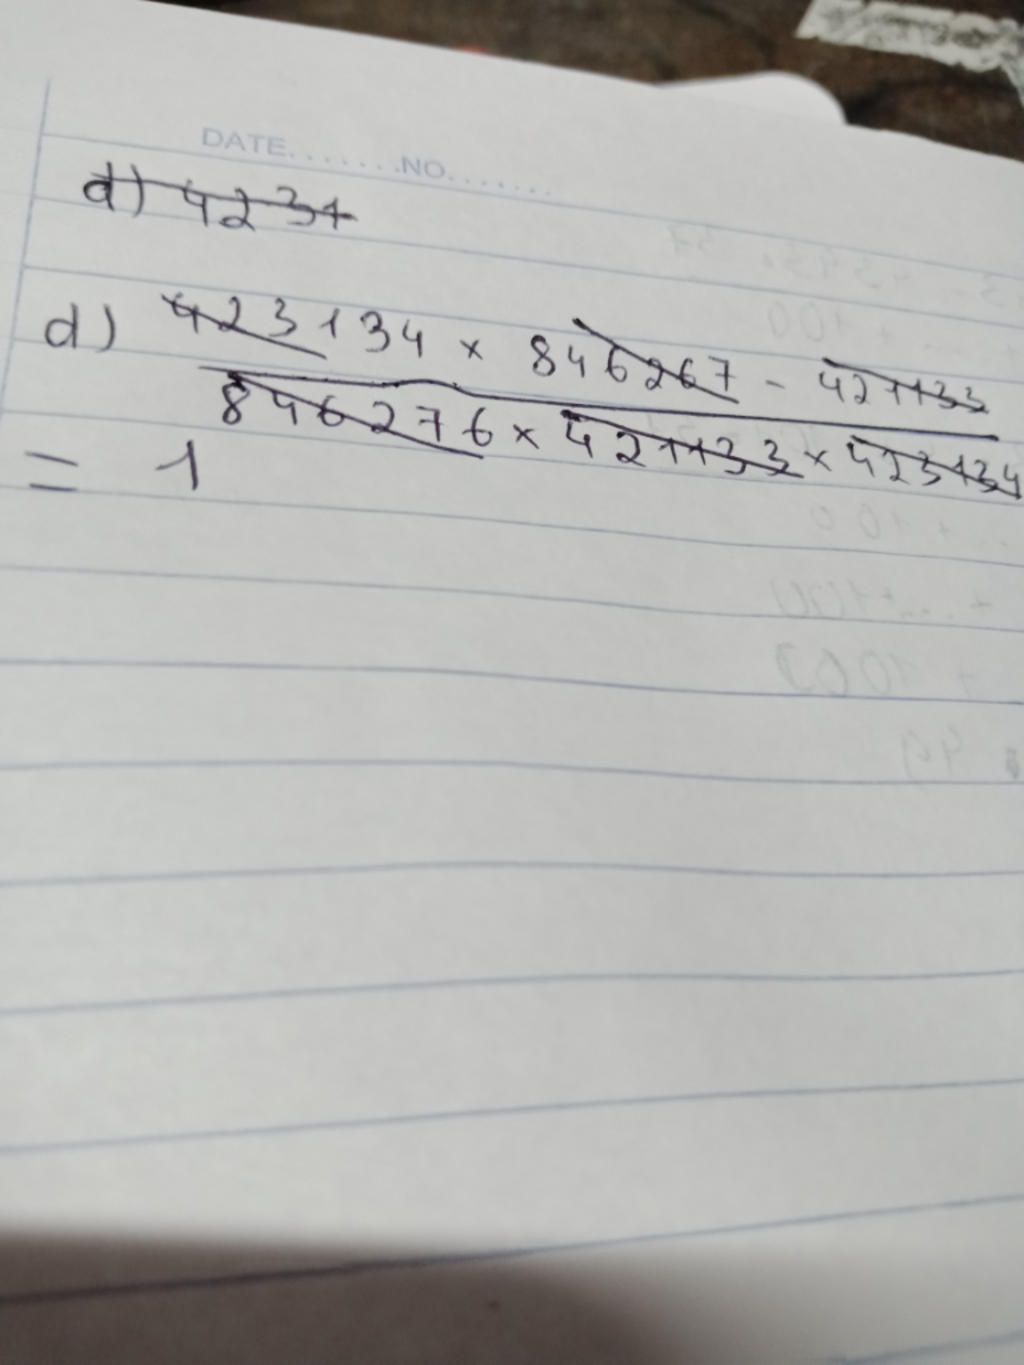 DATE.......NO.......
d) 4231
d) 423134 × 846267 - 421133
846276 × 421133 × 423134
= 1